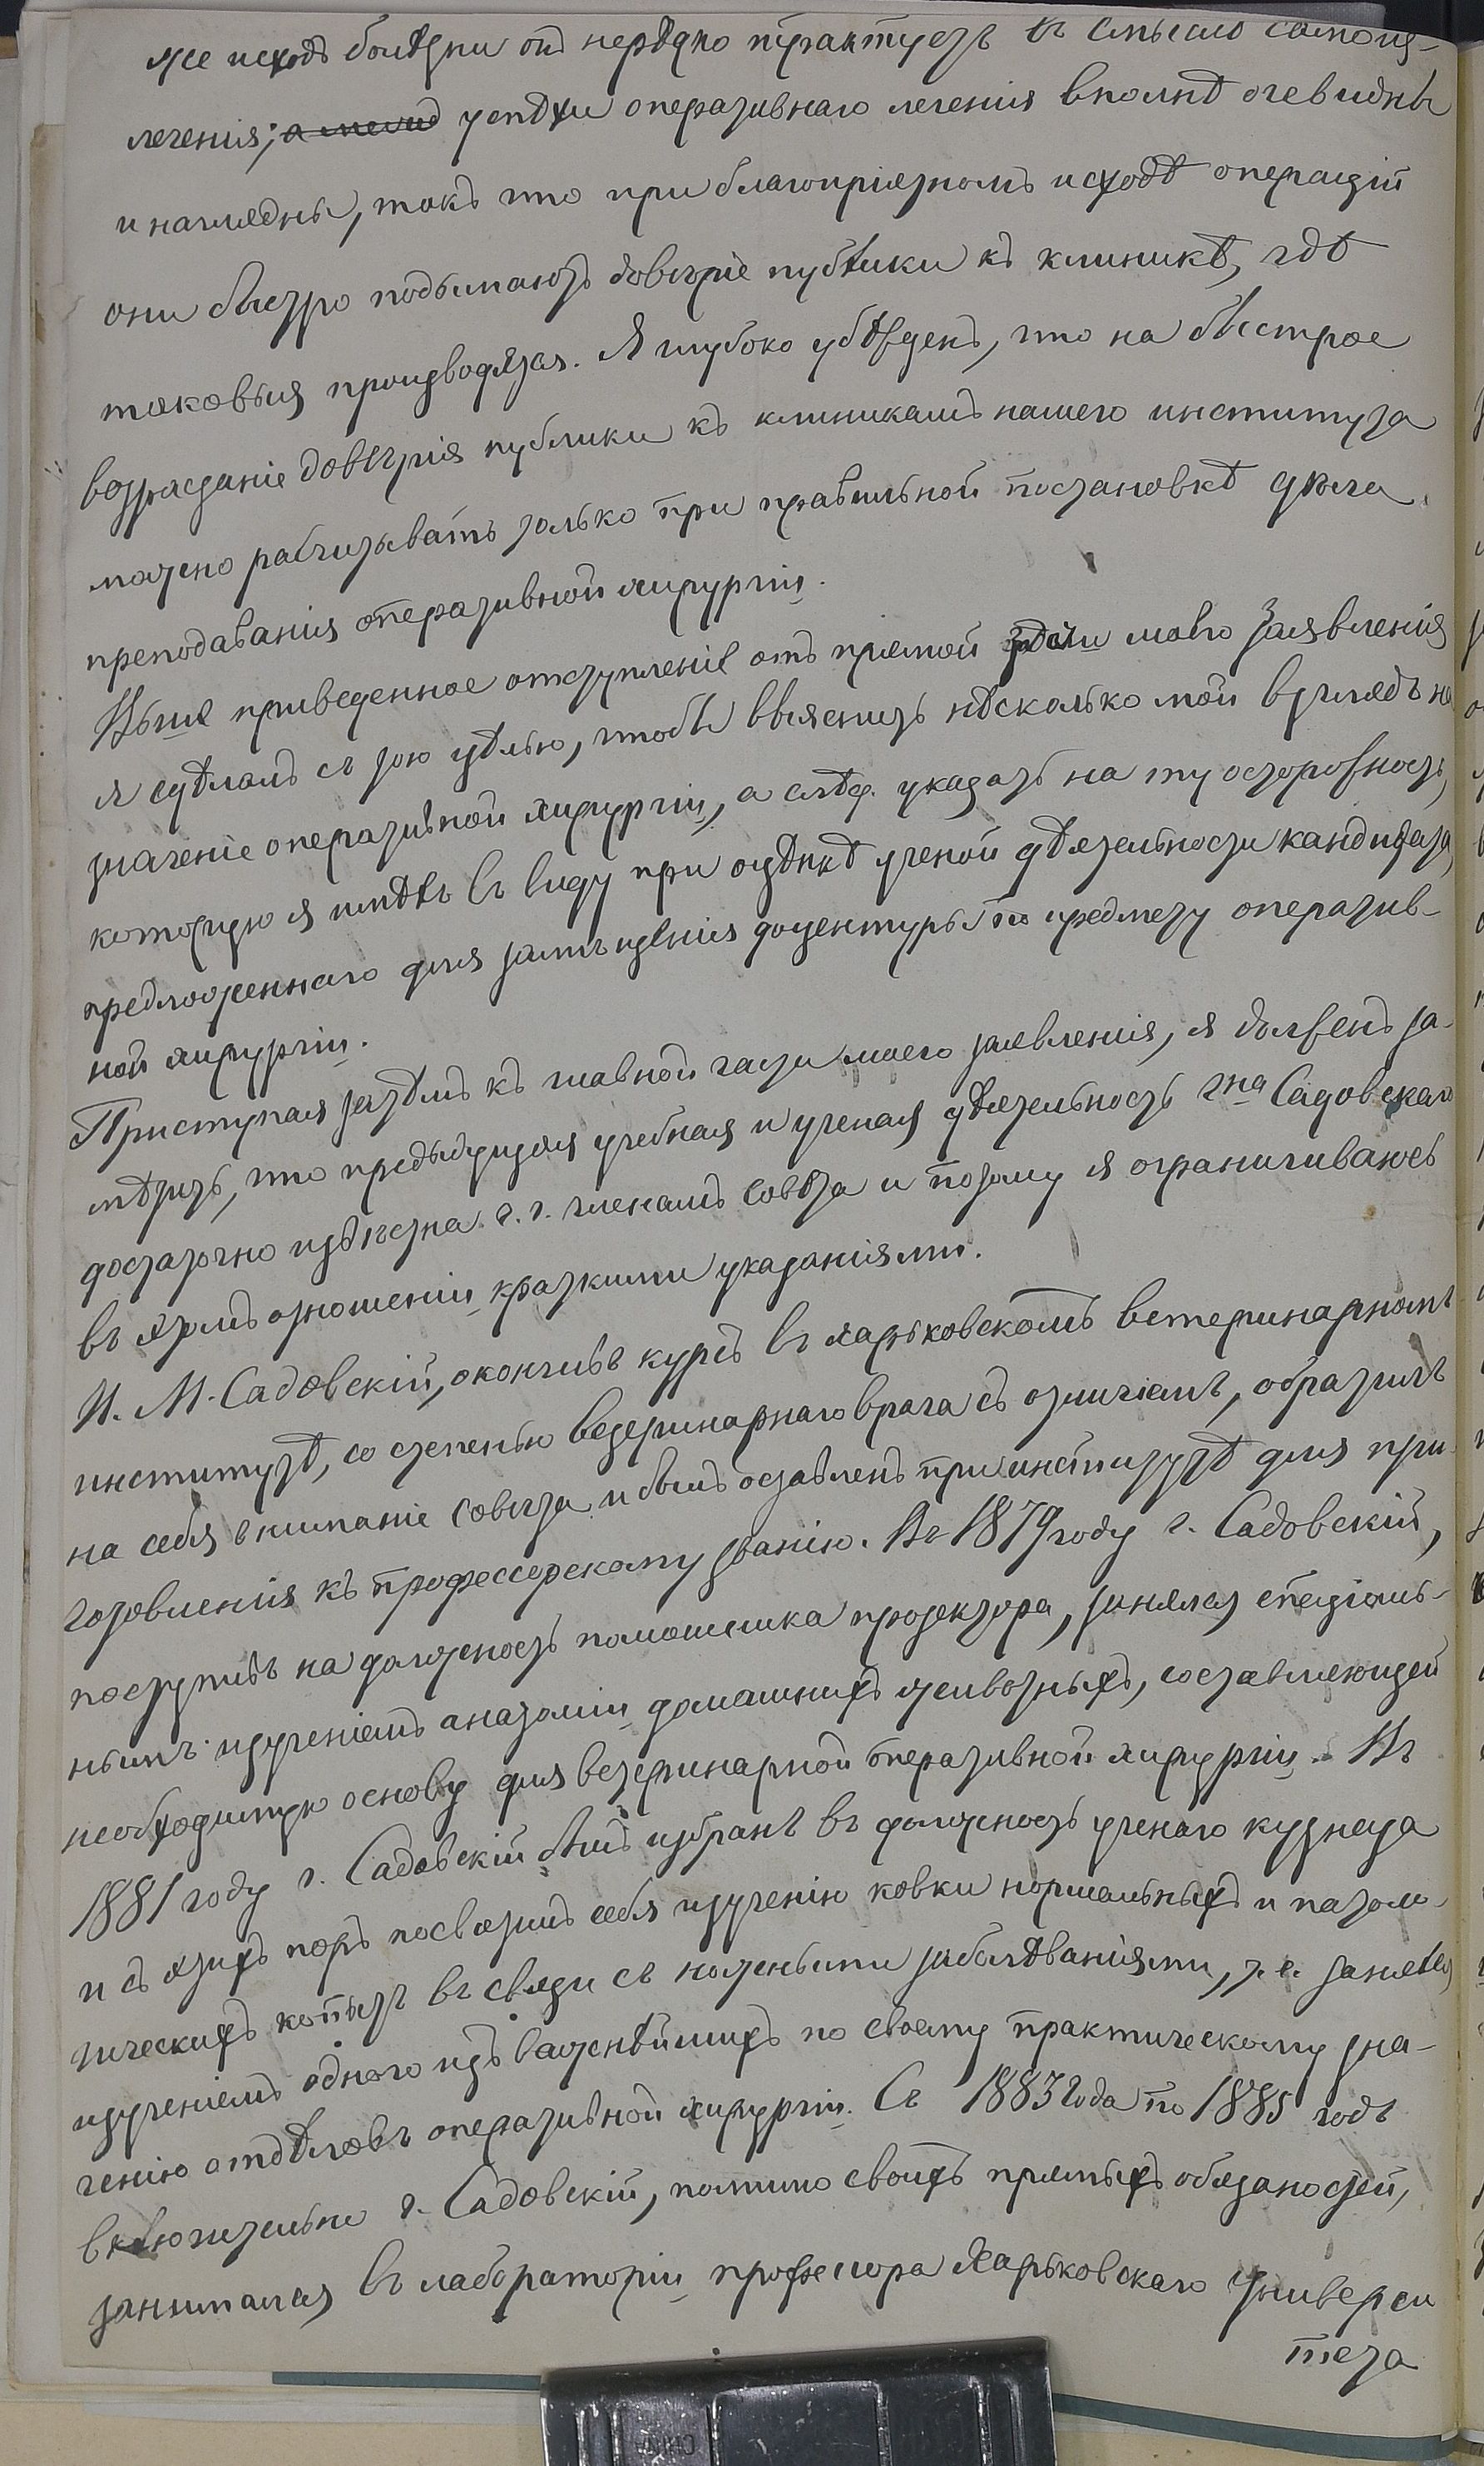 же исходъ болѣзни онъ нерѣдко трактуетъ въ смыслѣ самоиз-
леченія; успѣхи оперативнаго леченія вполнѣ очевидны
и наглядны, такъ что при благопріятномъ исходѣ операцій
они быстро подымаютъ довѣріе публики къ клиникѣ, гдѣ
таковыя производятся. Я глубоко убѣжденъ, что на быстрое
возрастаніе довѣрія публики къ клиникамъ нашего института
можно расчитывать только при правильной постановкѣ дѣла
преподаванія оперативной хирургіи.
Выше приведенное отступленіе отъ прямой моего заявленія
я сдѣлалъ съ тою цѣлью, чтобы выяснить нѣсколько мой взглядъ на
значеніе оперативной хирургіи, а слѣд. указать на ту осторожность,
которую я имѣлъ въ виду при оцѣнкѣ ученой дѣятельности кандидата,
предложеннаго для замѣщенія доцентуры по предмету оператив-
ной хирургіи.
Приступая затѣмъ къ главной части моего заявленія, я долженъ за-
мѣтить, что предыдущая учебная и ученая дѣятельность г-на Садовскаго
достаточно извѣстна г.г. членамъ совѣта и потому я ограничиваюсь
въ этомъ отношеніи краткими указаніями.
И. М. Садовскій, окончивъ курсъ въ харьковскомъ ветеринарномъ
институтѣ, со степенью ветеринарнаго врача съ отличіемъ, обратилъ
на себя вниманіе совѣта и былъ оставленъ при институтѣ для при-
готовленія къ профессорскому званію. Въ 1879 году г. Садовскій,
поступивъ на должность помошника прозектора, занялся спеціаль-
нымъ изученіемъ анатоміи домашнихъ животныхъ, составляющей
необходимую основу для ветеринарной оперативной хирургіи. Въ
1881 году г. Садовскій былъ избранъ въ должность ученаго кузнеца
и съ этихъ поръ посвятилъ себя изученію ковки нормальныхъ и патоло-
гическихъ копытъ въ связи съ копытными заболѣваніями, т. е. занялся
изученіемъ одного изъ важнѣйшихъ по своему практическому зна-
ченію отдѣловъ оперативной хирургіи. Съ 1883 года по 1885 годъ
включительно г. Садовскій, помимо своихъ прямыхъ обязаностей,
занимался въ лабораторіи профессора Харьковскаго Универси
тета